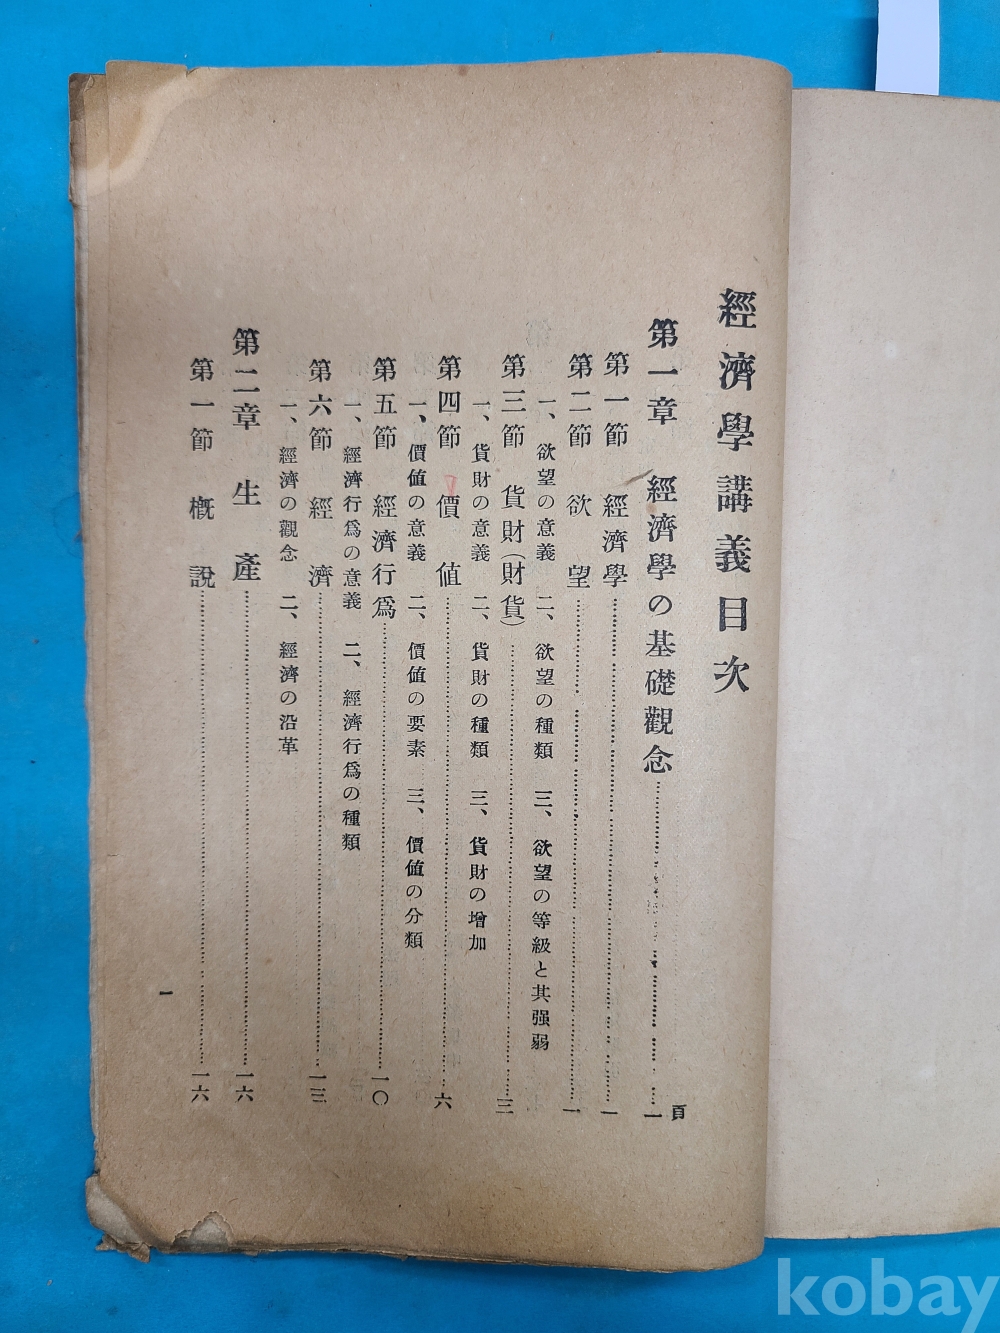 經濟學講義目次
頁
第一章 經濟學の基礎觀念 一
第一節 經濟學 一
第二節 欲望 一
一、欲望の意義 二、欲望の種類 三、欲望の等級と其强弱
第三節 貨財(財貨) 三
一、貨財の意義 二、貨財の種類 三、貨財の增加
第四節 價値 六
一、價値の意義 二、價値の要素 三、價値の分類
第五節 經濟行爲 一〇
一、經濟行爲の意義 二、經濟行爲の種類
第六節 經濟 一三
一、經濟の觀念 二、經濟の沿革
第二章 生產 一六
第一節 槪說 一六
一
kobay